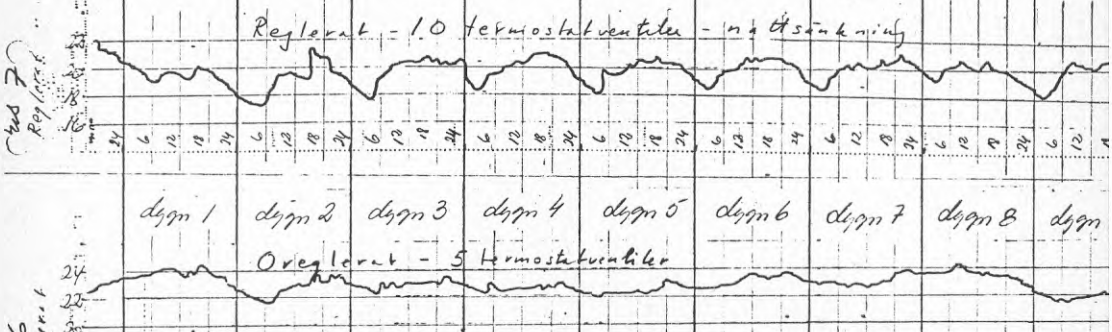 Reglerat - 10 termostatventiler - nattsänkning
Hus 7
Reglerat
18
16
24 6 12 18 24 6 12 18 24 6 12 18 24 6 12 18 24 6 12 18 24 6 12 18 24 6 12 18 24 6 12 18 24 6 12 18
dygn 1 dygn 2 dygn 3 dygn 4 dygn 5 dygn 6 dygn 7 dygn 8 dygn
Oreglerat - 5 termostatventiler
24
22